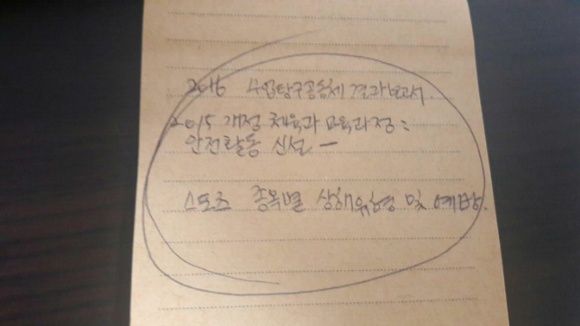 2016 수업탐구공동체 결과보고서.
2015 개정 체육과 교육과정:
안전활동 신설 —
스포츠 종목별 상해유형 및 예방.